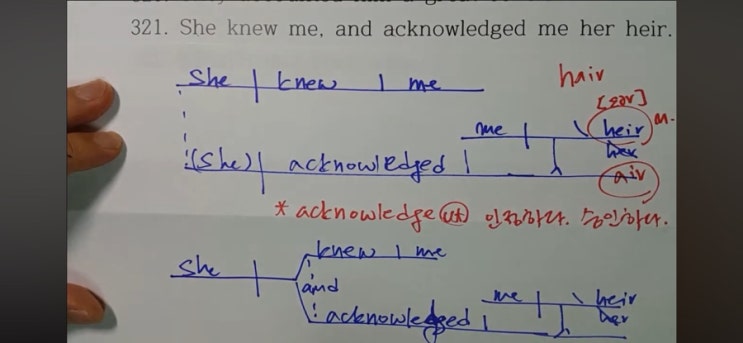 321. She knew me, and acknowledged me her heir.
She knew me hair
[εər]
me heir n.
her
(She) acknowledged air
* acknowledge ⓥt 인정하다. 승인하다.
knew me
She
and me heir
acknowledged her